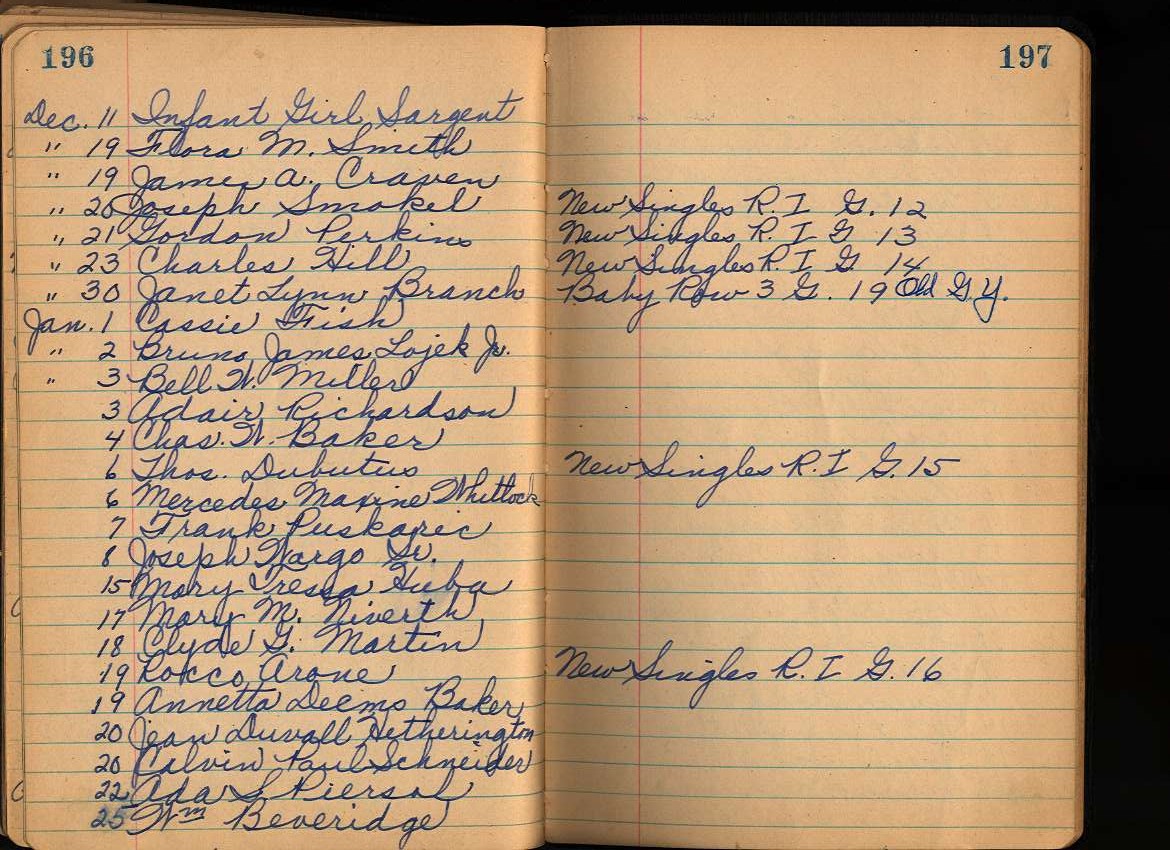 196
197
Dec. 11 Infant Girl Sargent
" 19 Flora M. Smith
" 19 James A. Craven
" 20 Joseph Smokel New Singles R. I G. 12
" 21 Gordon Perkins New Singles R. I G 13
" 23 Charles Hill New Singles R. I G. 14
" 30 Janet Lynn Branch Baby Row 3 G. 19 Old G.Y.
Jan. 1 Cassie Fish
" 2 Bruno James Lojek Jr.
" 3 Bell W. Miller
3 Adair Richardson
4 Chas. W. Baker
6 Thos. Dubutus New Singles R. I G. 15
6 Mercedes Maxine Whitlock
7 Frank Puskaric
8 Joseph Wargo Sr.
15 Mary Tressa Huba
17 Mary M. Niverth
18 Clyde G. Martin
19 Rocco Arone New Singles R. I G. 16
19 Annetta Deems Baker
20 Jean Duvall Hetherington
20 Calvin Paul Schneider
22 Ada S Piersol
25 Wm Beveridge